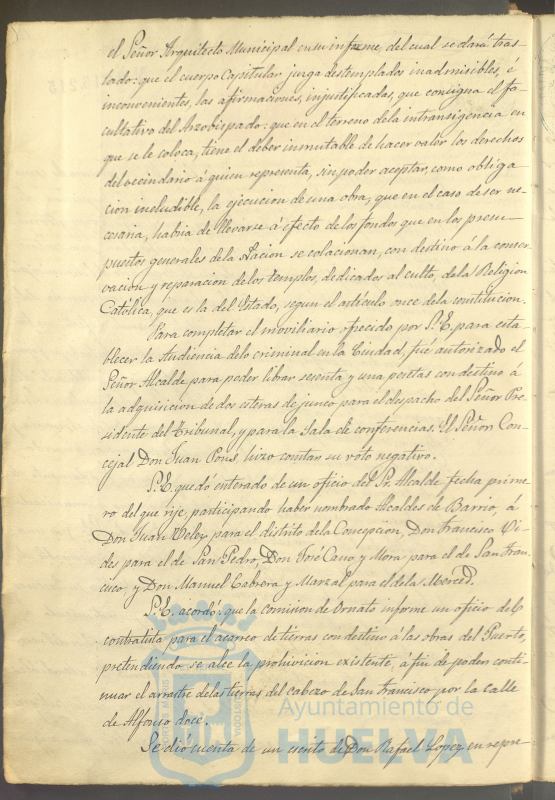 el Señor Arquitecto Municipal en su informe, del cual se dará tras-
lado: que el cuerpo Capitular juzga destemplados inadmisibles, é
inconvenientes, las afirmaciones, injustificadas, que consigna el fa-
cultativo del Arzobispado: que en el terreno de la intransigencia en
que se le coloca, tiene el deber inmutable de hacer valer los derechos
del vecindario á quien representa, sin poder aceptar, como obliga-
cion ineludible, la ejecucion de una obra, que en el caso de ser ne-
cesaria, habia de llevarse á efecto de los fondos que en los presu-
puestos generales de la Nacion se colacionan, con destino á la conser-
vacion y reparacion de los templos, dedicados al culto, de la Religion
Católica, que es la del Estado, segun el artículo once de la constitucion.
Para completar el moviliario ofrecido por S.E. para esta-
blecer la Audiencia de lo criminal en la Ciudad, fué autorizado el
Señor Alcalde para poder librar sesenta y una pesetas con destino á
la adquisicion de dos esteras de junco para el despacho del Señor Pre-
sidente del Tribunal, y para la Sala de conferencias. El Señor Con-
cejal Don Juan Pons hizo constar su voto negativo.
S.E. quedó enterado de un oficio del Sr. Alcalde fecha prime-
ro del que rije, participando haber nombrado Alcaldes de Barrio, á
Don Juan Velez para el distrito de la Concepcion, Don Francisco Vi-
des para el de San Pedro, Don José Cano y Mora para el de San Fran-
cisco, y Don Manuel Cabrera y Marzal para el de la Merced.
S.E. acordó: que la comision de Ornato informe un oficio del
contratista para el acarreo de tierras con destino á las obras del Puerto,
pretendiendo se alce la prohivicion existente, á fin de poder conti-
nuar el arrastre de las tierras del cabezo de San Francisco por la calle
de Alfonso doce.
Se dió cuenta de un escrito de Don Rafael Lopez, en repre-
Ayuntamiento de
HUELVA